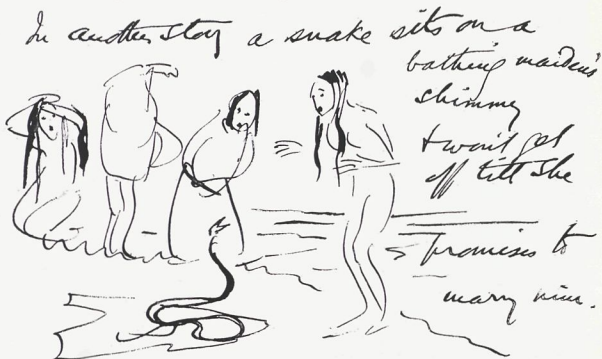 In another story a snake sits on a
bathing maiden's
shimmy
& won't get
off till she
promises to
marry him.